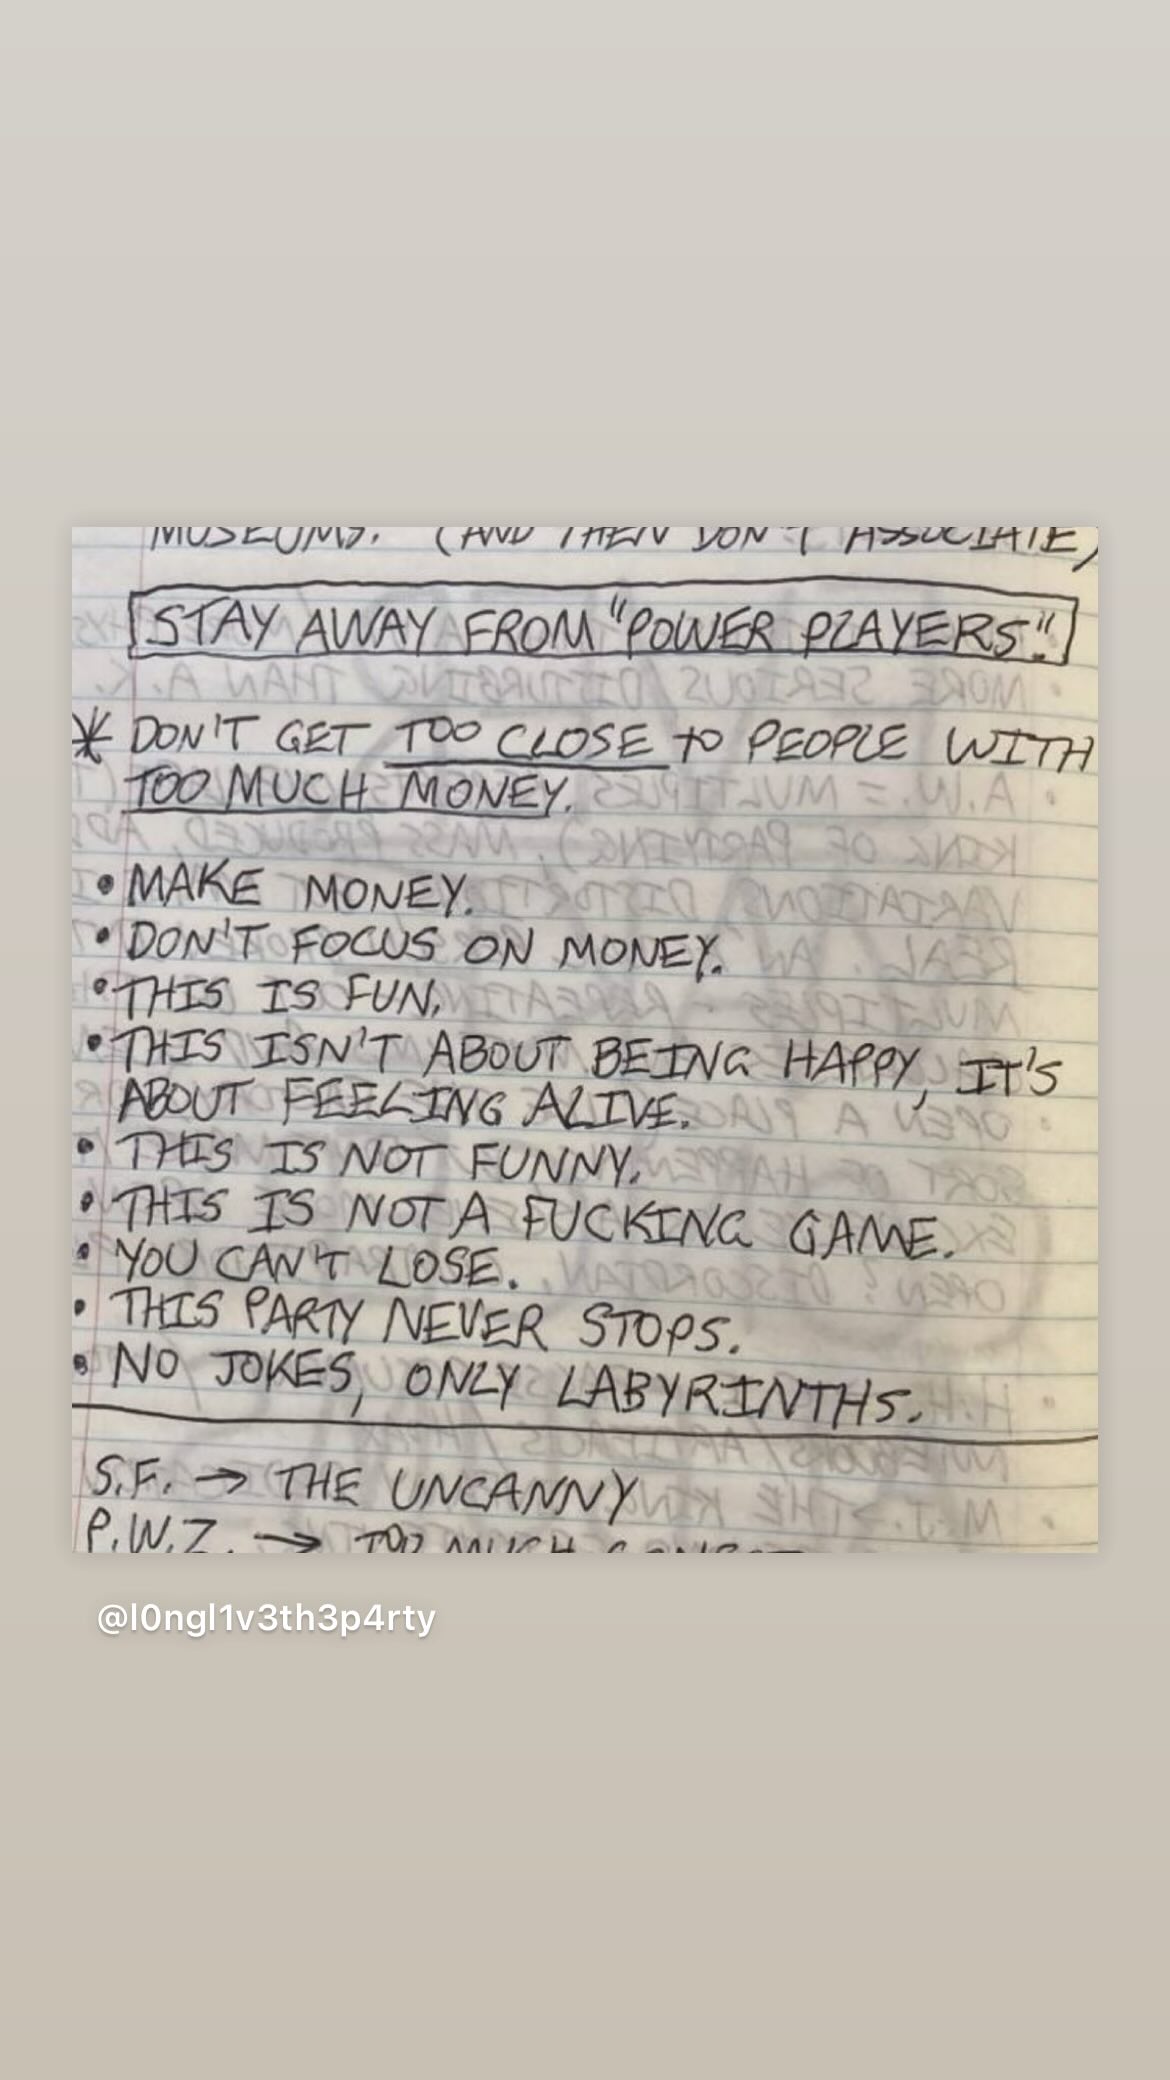 MUSEUMS. (AND THEN DON'T ASSOCIATE)
STAY AWAY FROM "POWER PLAYERS."
* DON'T GET TOO CLOSE TO PEOPLE WITH
TOO MUCH MONEY.
• MAKE MONEY.
• DON'T FOCUS ON MONEY.
• THIS IS FUN.
• THIS ISN'T ABOUT BEING HAPPY, IT'S
ABOUT FEELING ALIVE.
• THIS IS NOT FUNNY.
• THIS IS NOT A FUCKING GAME.
• YOU CAN'T LOSE.
• THIS PARTY NEVER STOPS.
• NO JOKES, ONLY LABYRINTHS.
S.F. → THE UNCANNY
P.W.Z. → TOO MUCH
@l0ngl1v3th3p4rty